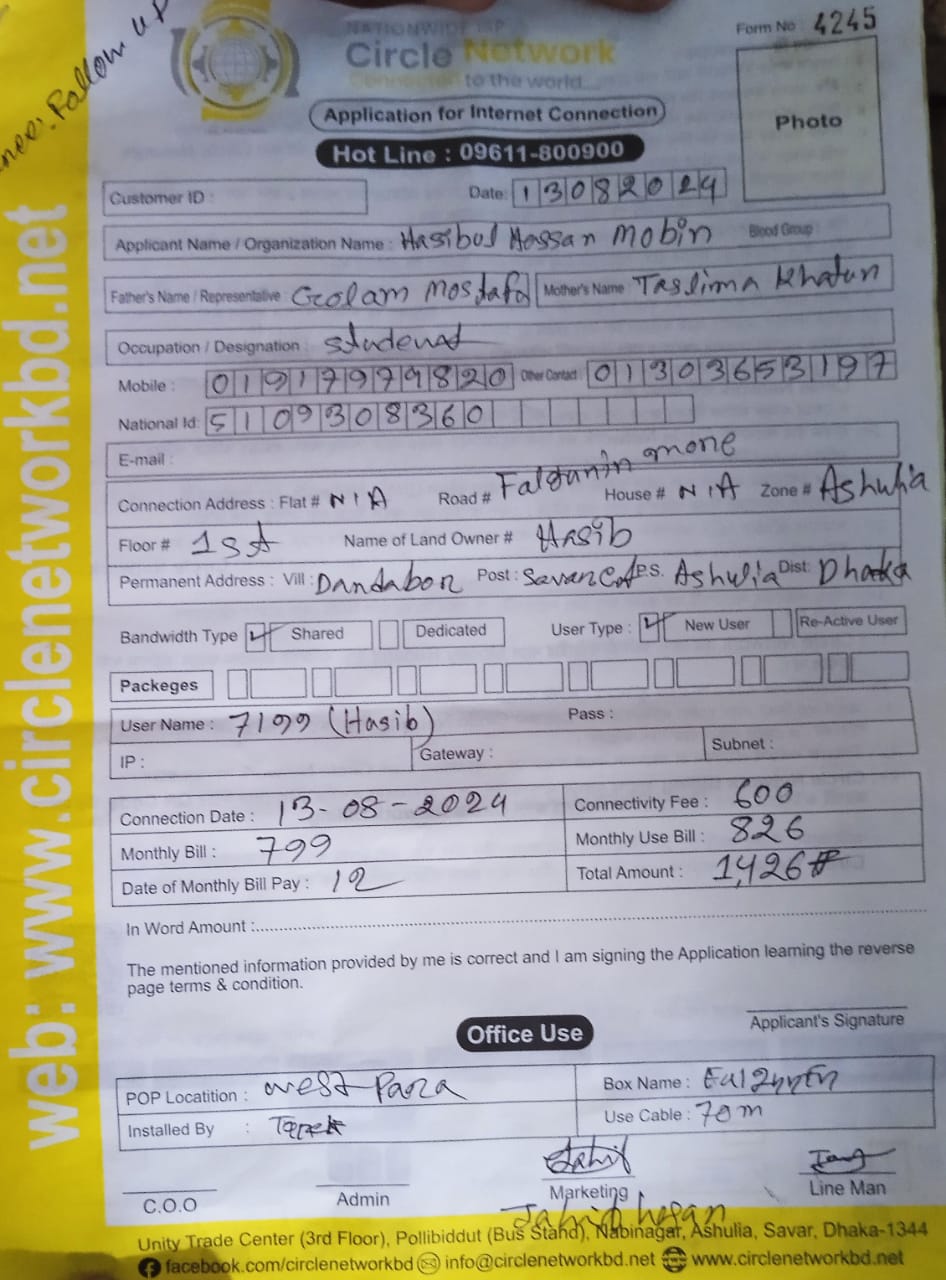 Follow up
NATIONWIDE ISP
Circle Network
Connected to the world...
Form No : 4245
Photo
Application for Internet Connection
Hot Line : 09611-800900
Customer ID :
Date: 13082024
Applicant Name / Organization Name : Hasibul Hassan Mobin Blood Group :
Father's Name / Representative : Golam Mostafa Mother's Name : Taslima Khatun
Occupation / Designation : studenat
Mobile : 01917979820 Other Contact : 01303653197
National Id: 5109308360
E-mail :
Connection Address : Flat # N/A Road # House # N/A Zone # Ashulia
Floor # 1st Name of Land Owner # Hasib
Permanent Address : Vill : Dandabor Post : P.S. Ashulia Dist: Dhaka
Bandwidth Type Shared Dedicated User Type : New User Re-Active User
Packeges
User Name : 7199 (Hasib) Pass :
IP : Gateway : Subnet :
Connection Date : 13-08-2024 Connectivity Fee : 600
Monthly Bill : 799 Monthly Use Bill : 826
Date of Monthly Bill Pay : 12 Total Amount : 1,426
In Word Amount :
The mentioned information provided by me is correct and I am signing the Application learning the reverse
page terms & condition.
Applicant's Signature
Office Use
POP Locatition : west Para Box Name :
Installed By : Use Cable : 70m
C.O.O Admin Marketing Line Man
Jahid hasan
Unity Trade Center (3rd Floor), Pollibiddut (Bus Stand), Nabinagar, Ashulia, Savar, Dhaka-1344
facebook.com/circlenetworkbd info@circlenetworkbd.net www.circlenetworkbd.net
web: www.circlenetworkbd.net